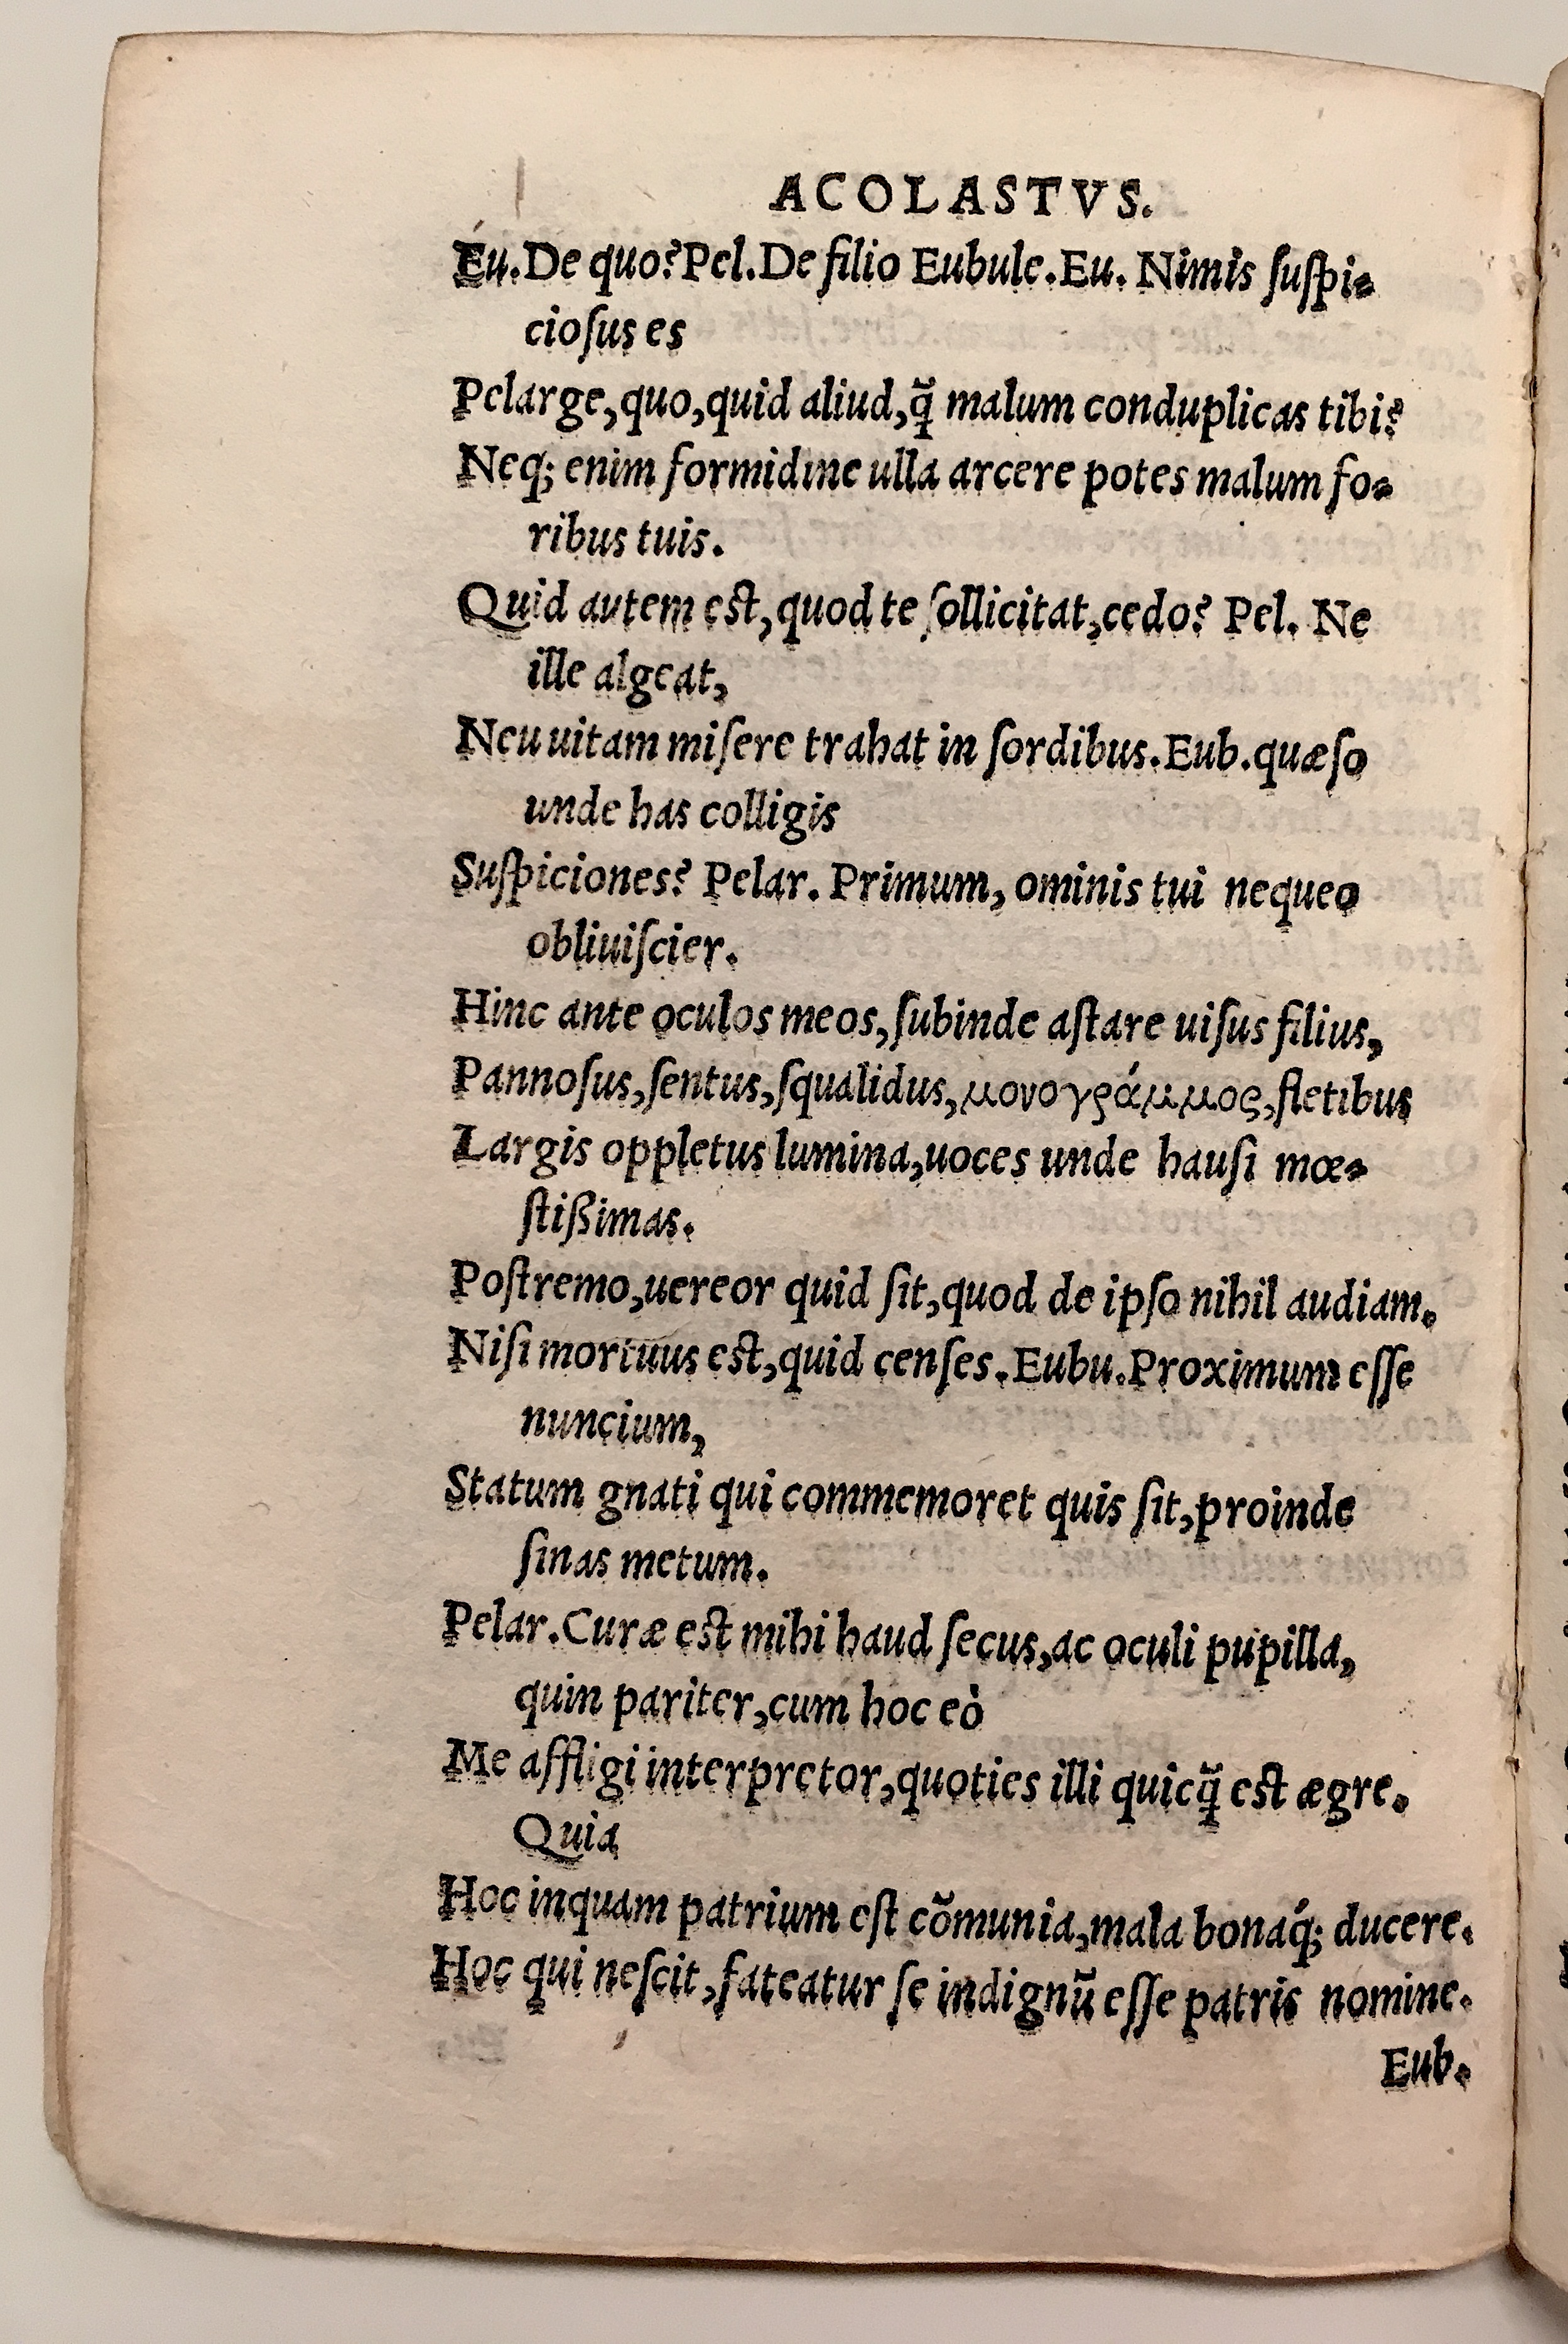 ACOLASTVS.
Eu. De quo? Pel. De filio Eubule. Eu. Nimis ſuſpi-
cioſus es
Pelarge, quo, quid aliud, q̃ malum conduplicas tibi?
Neq; enim formidine ulla arcere potes malum fo-
ribus tuis.
Quid autem est, quod te ſollicitat, cedo? Pel. Ne
ille algeat,
Neu uitam miſere trahat in ſordibus. Eub. quæſo
unde has colligis
Suſpiciones? Pelar. Primum, ominis tui nequeo
obliuiſcier.
Hinc ante oculos meos, ſubinde aſtare uiſus filius,
Pannoſus, ſentus, ſqualidus, μονογράμμος, fletibus
Largis oppletus lumina, uoces unde hauſi mœ-
ſtißimas.
Poſtremo, uereor quid ſit, quod de ipſo nihil audiam.
Niſi mortuus est, quid cenſes. Eubu. Proximum eſſe
nuncium,
Statum gnati qui commemoret quis ſit, proinde
ſinas metum.
Pelar. Curæ est mihi haud ſecus, ac oculi pupilla,
quin pariter, cum hoc eò
Me affligi interpretor, quoties illi quicq̃ est ægre.
Quia
Hoc inquam patrium eſt cõmunia, mala bonaq́; ducere.
Hoc qui neſcit, fateatur ſe indignũ eſſe patris nomine.
Eub.